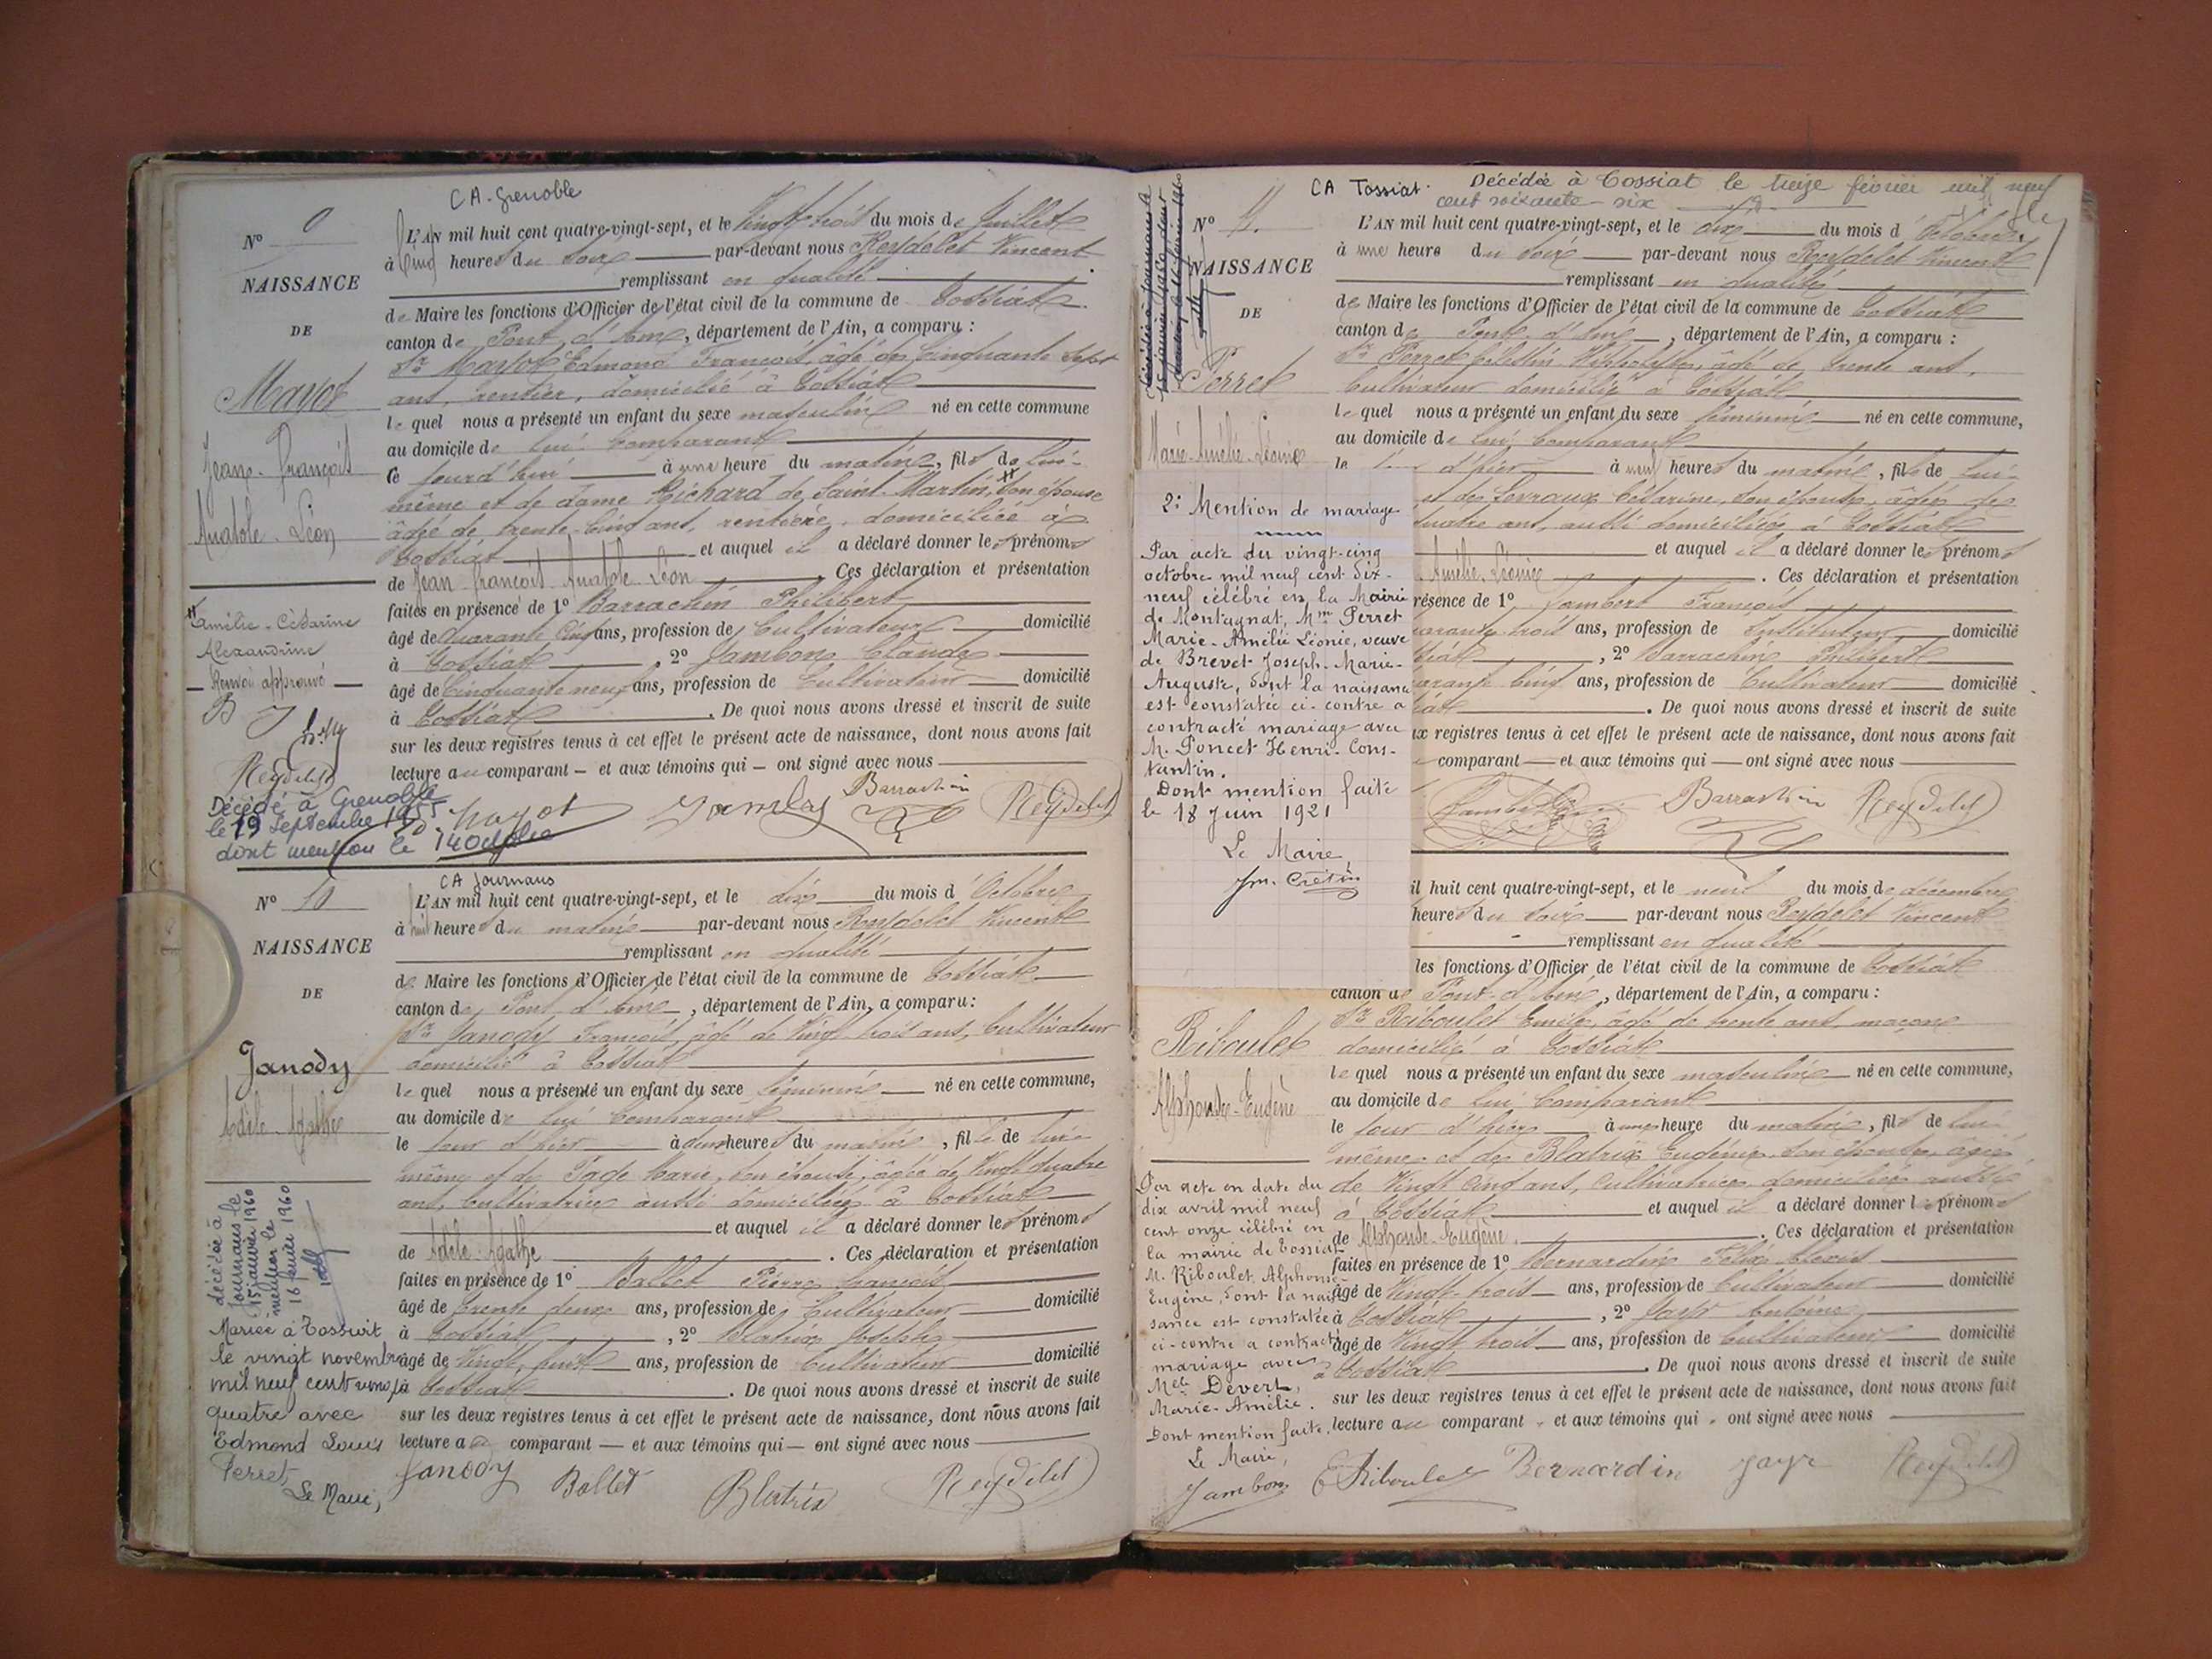 CA. Grenoble
N° 9
L'AN mil huit cent quatre-vingt-sept, et le Vingt trois du mois de Juillet
à Cinq heures du soir par-devant nous Reydelet Vincent
NAISSANCE
remplissant en qualité
DE
de Maire les fonctions d'Officier de l'état civil de la commune de Tossiat
canton de Pont d'Ain, département de l'Ain, a comparu :
Sr Mayot Edmond François âgé de Cinquante sept
Mayot
ans, rentier, domicilié à Tossiat
le quel nous a présenté un enfant du sexe masculin né en cette commune
au domicile de lui comparant
Jean-François
Ce jourd'hui à une heure du matin, fils de lui-
même et de dame Richard de Saint-Martin, son épouse
Anatole-Léon
âgée de trente-cinq ans, rentière, domiciliée à
Tossiat et auquel il a déclaré donner les prénoms
de Jean François Anatole Léon. Ces déclaration et présentation
faites en présence de 1° Barrachin Philibert
Amélie-Césarine
Alexandrine
âgé de Quarante Cinq ans, profession de Cultivateur domicilié
à Tossiat, 2° Jambon Claude
Renvoi approuvé
âgé de Cinquante neuf ans, profession de Cultivateur domicilié
à Tossiat. De quoi nous avons dressé et inscrit de suite
sur les deux registres tenus à cet effet le présent acte de naissance, dont nous avons fait
lecture au comparant — et aux témoins qui — ont signé avec nous
Reydelet
Décédé à Grenoble
le 19 Septembre 1955
dont mention le 14 Octobre
Mayot Barrachin Reydelet
CA Journans
N° 10
L'AN mil huit cent quatre-vingt-sept, et le dix du mois d'Octobre
à huit heures du matin par-devant nous Reydelet Vincent
NAISSANCE
remplissant en qualité
DE
de Maire les fonctions d'Officier de l'état civil de la commune de Tossiat
canton de Pont d'Ain, département de l'Ain, a comparu :
Sr Janody François, âgé de Vingt trois ans, Cultivateur
Janody
domicilié à Tossiat
le quel nous a présenté un enfant du sexe féminin né en cette commune,
Adèle Agathe
au domicile de lui Comparant
le jour d'hier à deux heures du matin, fille de lui-
même et de Page Marie, son épouse, âgée de Vingt quatre
ans, Cultivatrice aussi domiciliée à Tossiat
et auquel il a déclaré donner les prénoms
de Adèle-Agathe. Ces déclaration et présentation
décédée à
Journans le
15 janvier 1960
mention le
16 février 1960
faites en présence de 1° Ballet Pierre François
âgé de trente deux ans, profession de Cultivateur domicilié
à Tossiat, 2° Blatrix Joseph
âgé de Vingt huit ans, profession de Cultivateur domicilié
à Tossiat. De quoi nous avons dressé et inscrit de suite
sur les deux registres tenus à cet effet le présent acte de naissance, dont nous avons fait
lecture au comparant — et aux témoins qui — ont signé avec nous
Mariée à Tossiat
le vingt novembre
mil neuf cent vingt
quatre avec
Edmond Louis
Perret
Le Maire,
Janody Ballet Blatrix Reydelet
CA Tossiat. Décédée à Tossiat le treize février mil neuf
cent soixante-six
N° 11.
L'AN mil huit cent quatre-vingt-sept, et le dix du mois d'Octobre
à une heure du soir par-devant nous Reydelet Vincent
NAISSANCE
remplissant en qualité
DE
de Maire les fonctions d'Officier de l'état civil de la commune de Tossiat
canton de Pont-d'Ain, département de l'Ain, a comparu :
Perret
Cultivateur domicilié à Tossiat
le quel nous a présenté un enfant du sexe féminin né en cette commune,
au domicile de lui Comparant
Marie-Amélie-Léonie
le d'hier à neuf heures du matin, fille de lui-
et de Cézarine, son épouse, âgée de
quatre ans, aussi domiciliée à Tossiat
et auquel il a déclaré donner les prénoms
Amélie-Léonie. Ces déclaration et présentation
résence de 1° Jambert François
trois ans, profession de Instituteur domicilié
, 2° Barrachin Philibert
cinq ans, profession de Cultivateur domicilié
. De quoi nous avons dressé et inscrit de suite
ux registres tenus à cet effet le présent acte de naissance, dont nous avons fait
comparant — et aux témoins qui — ont signé avec nous
Barrachin Reydelet
2: Mention de mariage
Par acte du vingt-cinq
octobre mil neuf cent dix-
neuf célébré en la Mairie
de Montagnat, Mme Perret
Marie-Amélie Léonie, veuve
de Brevet Joseph-Marie-
Auguste, dont la naissance
est constatée ci-contre a
contracté mariage avec
M. Poncet Henri-Cons-
tantin.
Dont mention faite
le 18 Juin 1921
Le Maire,
il huit cent quatre-vingt-sept, et le neuf du mois de décembre
heures du soir par-devant nous Reydelet Vincent
remplissant en qualité
les fonctions d'Officier de l'état civil de la commune de Tossiat
canton de Pont-d'Ain, département de l'Ain, a comparu :
Sr Riboulet Emile, âgé de trente ans, maçon
Riboulet
domicilié à Tossiat
le quel nous a présenté un enfant du sexe masculin né en cette commune,
Alphonse-Eugène
au domicile de lui Comparant
le jour d'hier à une heure du matin, fils de lui-
même et de Blatrix Eugénie, son épouse, âgée
de Vingt cinq ans, Cultivatrice, domiciliée aussi
à Tossiat et auquel il a déclaré donner les prénoms
de Alphonse-Eugène. Ces déclaration et présentation
faites en présence de 1° Bernardin Félix
âgé de Vingt-trois ans, profession de Cultivateur domicilié
à Tossiat, 2° Jayr Antoine
âgé de Vingt trois ans, profession de Cultivateur domicilié
à Tossiat. De quoi nous avons dressé et inscrit de suite
sur les deux registres tenus à cet effet le présent acte de naissance, dont nous avons fait
lecture au comparant - et aux témoins qui - ont signé avec nous
Par acte en date du
dix avril mil neuf
cent onze célébré en
la mairie de Tossiat
M. Riboulet, Alphonse
Eugène, dont la nais-
sance est constatée
ci-contre a contracté
mariage avec
Melle Devert,
Marie-Amélie.
Dont mention faite.
Le Maire,
Jambon
E Riboulet Bernardin Jayr Reydelet